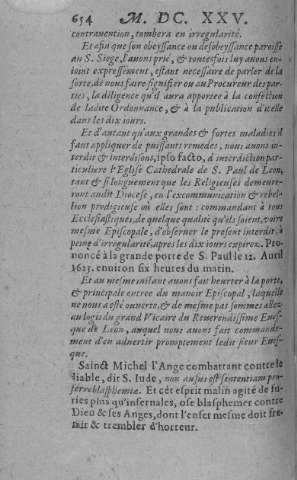 654 M. DC. XXV.
contrauention, tombera en irregularité.
Et afin que son obeyssance ou desobeyssance paroisse
au S. Siege, l'auons prié, & toutesfois luy auons en-
ioint expressement, estant necessaire de parler de la
sorte, de nous faire signifier ou au Procureur des par-
ties, la diligence qu'il aura apportée à la confection
de ladite Ordonnance, & à la publication d'icelle
dans les dix iours.
Et d'autant qu'aux grandes & fortes maladies il
faut appliquer de puissants remedes, nous auons in-
terdit & interdisons, ipso facto, d'interdiction par-
ticuliere l'Eglise Cathedrale de S. Paul de Leon,
tant & si longuement que les Religieuses demeure-
ront audit Diocese, en l'excommunication & rebel-
lion prodigieuse où elles sont: commandant à tous
Ecclesiastiques, de quelque qualité qu'ils soient, voire
mesme Episcopale, d'obseruer le present interdit, à
peine d'irregularité apres les dix iours expirez. Pro-
noncé à la grande porte de S. Paul le 12. Auril
1625. enuiron six heures du matin.
Et au mesme instant auons fait heurter à la porte,
& principale entree du manoir Episcopal, laquelle
ne nous a esté ouuerte, & de mesme pas sommes allez
au logis du grand Vicaire du Reuerendissime Eues-
que de Leon, auquel nous auons fait commande-
ment d'en aduertir promptement ledit sieur Eues-
que.
Sainct Michel l'Ange combattant contre le
diable, dit S. Iude, non ausus est sententiam pro-
ferre blasphemiæ. Et cét esprit malin agité de fu-
ries plus qu'infernales, ose blasphemer contre
Dieu & ses Anges, dont l'enfer mesme doit fre-
mir & trembler d'horreur.